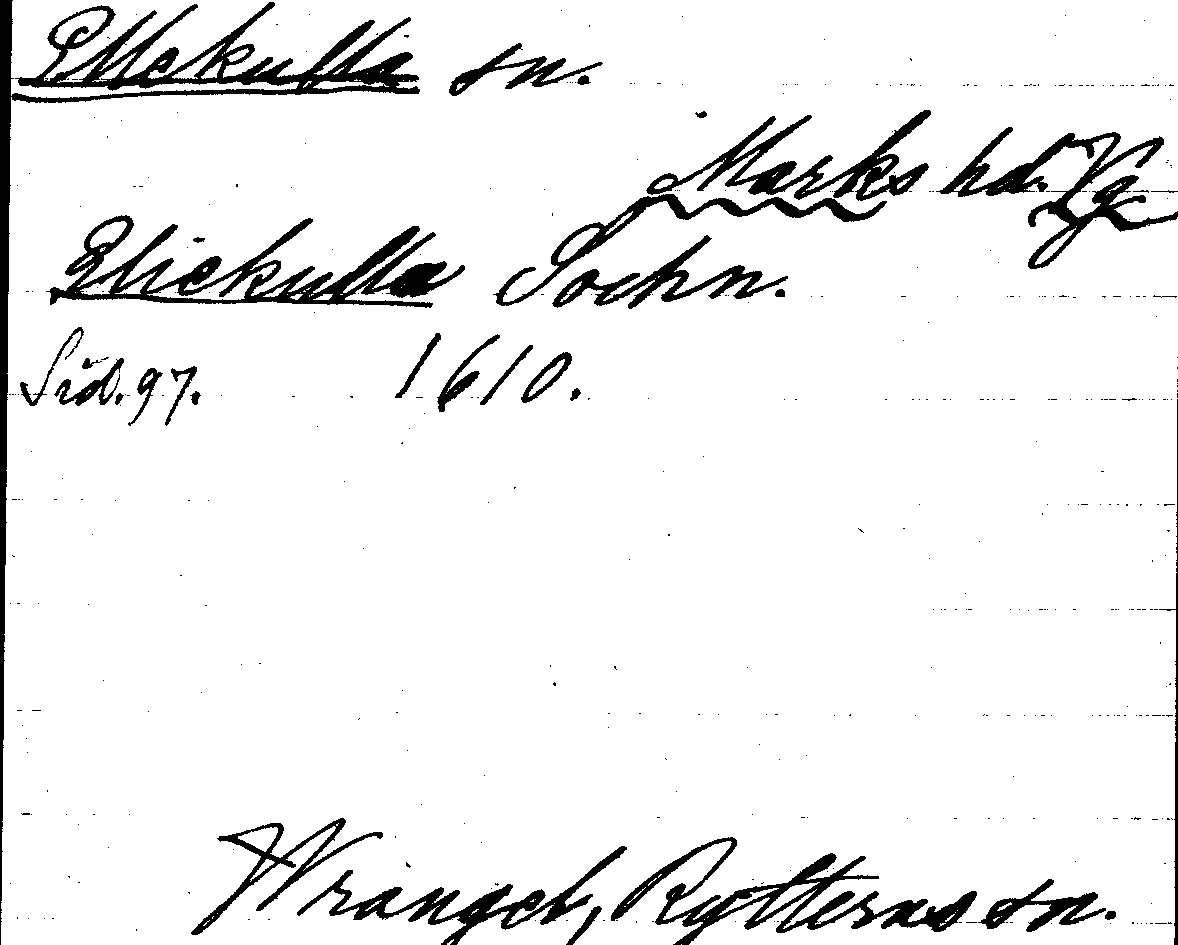 Ellekulla sn.
Marks hd. Vg
Eliekulla Sochn.
Sid. 97. 1610.
Wrangel, Rytternas sn.